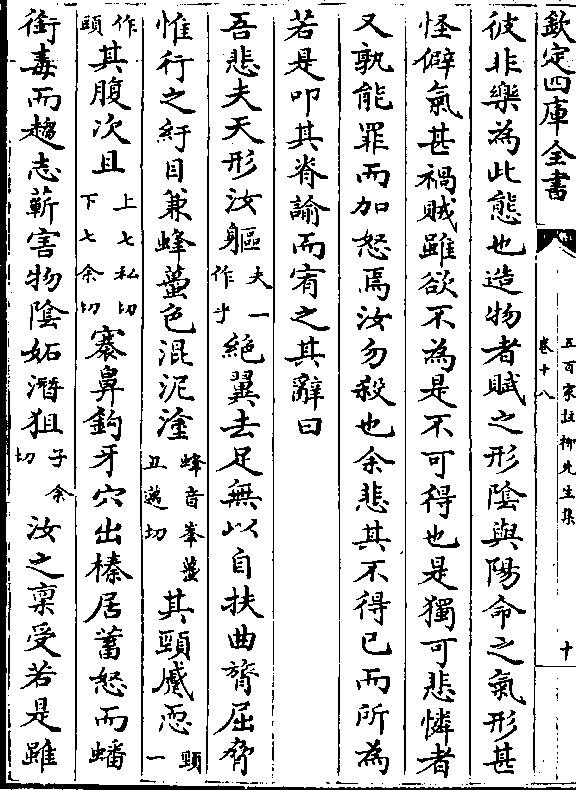 欽定四庫全書
五百家註柳先生集
卷十八
十
彼非樂為此態也造物者賦之形陰與陽命之氣形甚
怪僻氣甚禍賊雖欲不為是不可得也是獨可悲憐者
又孰能罪而加怒焉汝勿殺也余悲其不得已而所為
若是叩其脊諭而宥之其辭曰
吾悲夫天形汝軀夫一作乎絶翼去足無以自扶曲膂屈脅
惟行之紆目兼蜂蠆色混泥塗蜂音峯蠆丑邁切其頸蹙恧頸一
作頤其腹次且上七私切下七余切褰鼻鈎牙穴出榛居蓄怒而蟠
銜毒而趨志蘄害物陰妬潛狙子余切汝之稟受若是雖